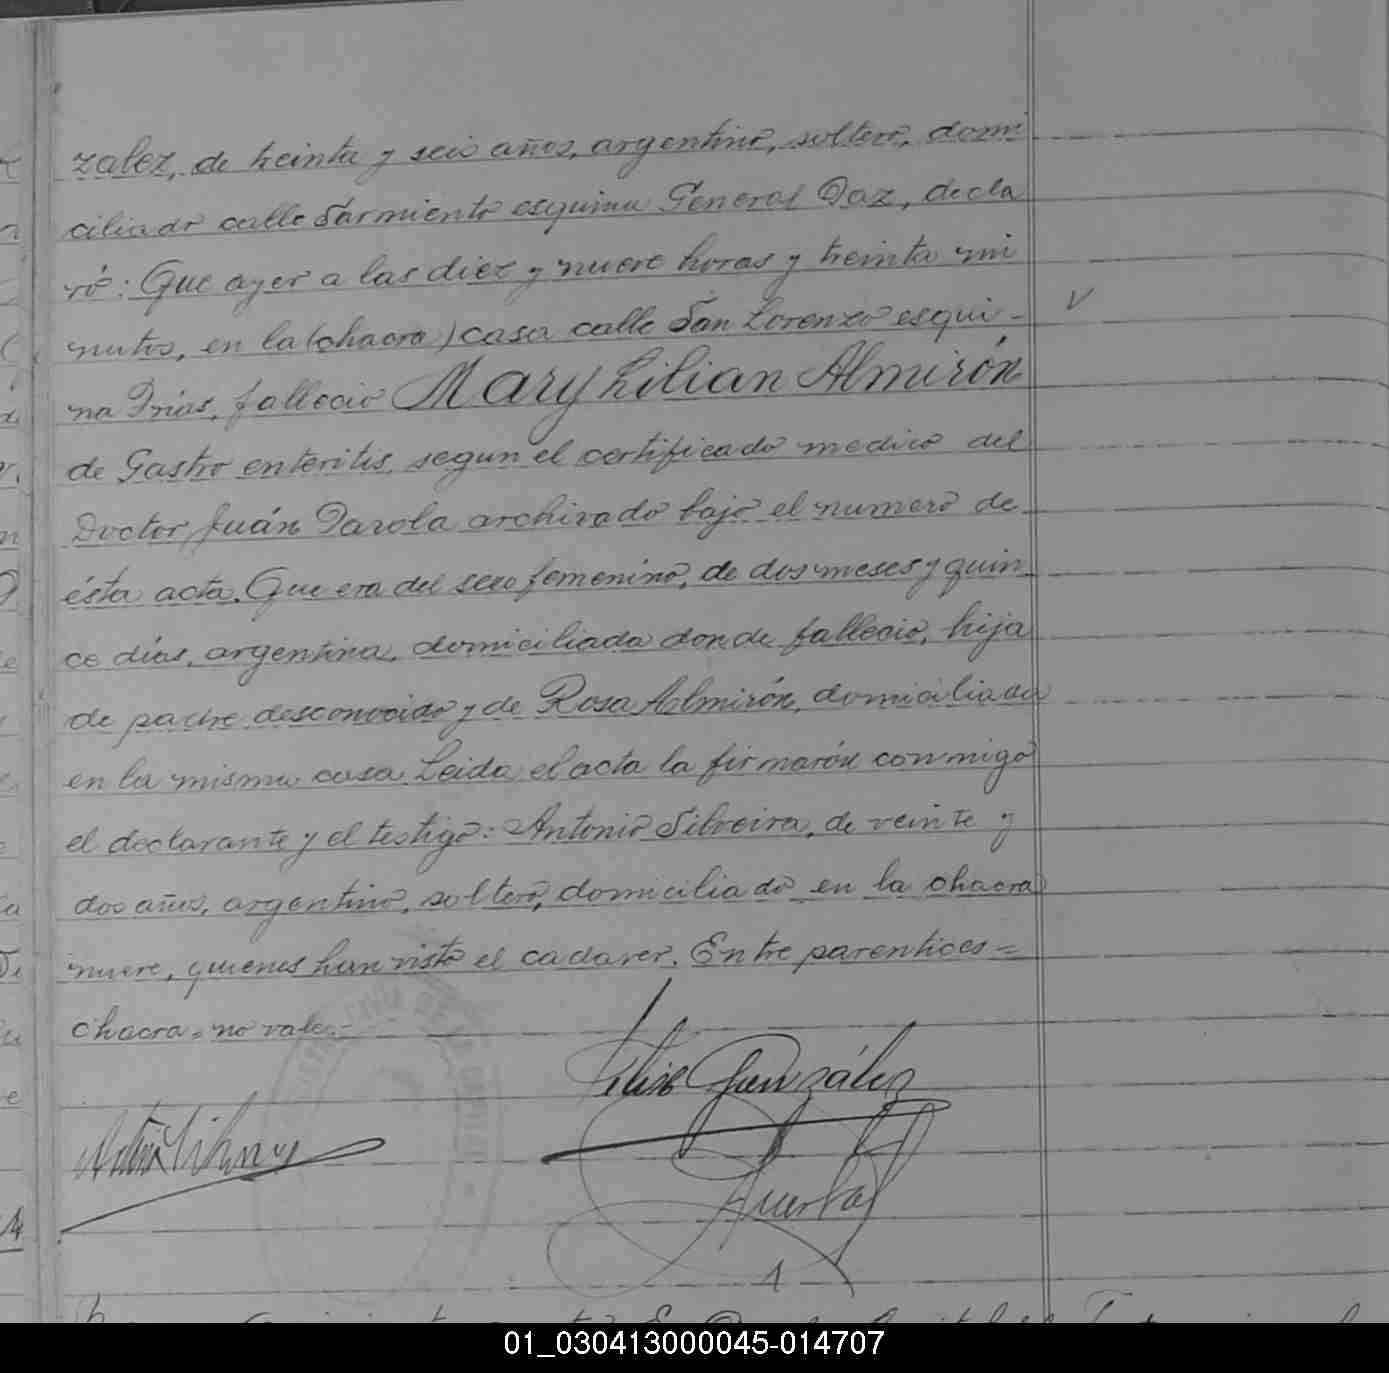 zalez, de treinta y seis años, argentino, soltero, domi
ciliado calle Sarmiento esquina General Paz, decla
ró: Que ayer a las diez y nueve horas y treinta mi
nutos, en la (chacra) casa calle San Lorenzo esqui-
na Frías, falleció Mary Lilian Almirón
de Gastro enteritis, segun el certificado medico del
Doctor Juán Parola archivado bajo el numero de
ésta acta. Que era del sexo femenino, de dos meses y quin
ce días, argentina, domiciliada donde falleció, hija
de padre desconocido y de Rosa Almirón, domiciliada
en la misma casa. Leida el acta la firmarón conmigo
el declarante y el testigo: Antonio Silveira, de veinte y
dos años, argentino, soltero, domiciliado en la chacra
nueve, quienes han visto el cadaver. Entre parentices=
chacra=no vale.-
González
01_030413000045-014707